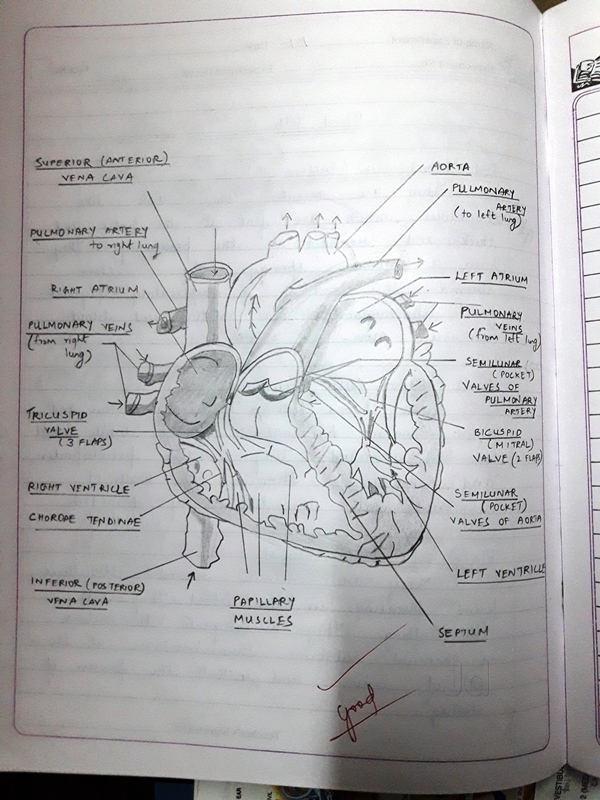 SUPERIOR (ANTERIOR)
VENA CAVA
PULMONARY ARTERY
to right lung
RIGHT ATRIUM
PULMONARY VEINS
(from right
lung)
TRICUSPID
VALVE
(3 FLAPS)
RIGHT VENTRICLE
CHORDAE TENDINAE
INFERIOR (POSTERIOR)
VENA CAVA
PAPILLARY
MUSCLES
AORTA
PULMONARY
ARTERY
(to left lung)
LEFT ATRIUM
PULMONARY
VEINS
(from left lung)
SEMILUNAR
(POCKET)
VALVES OF
PULMONARY
ARTERY
BICUSPID
(MITRAL)
VALVE (2 FLAPS)
SEMILUNAR
(POCKET)
VALVES OF AORTA
LEFT VENTRICLE
SEPTUM
good